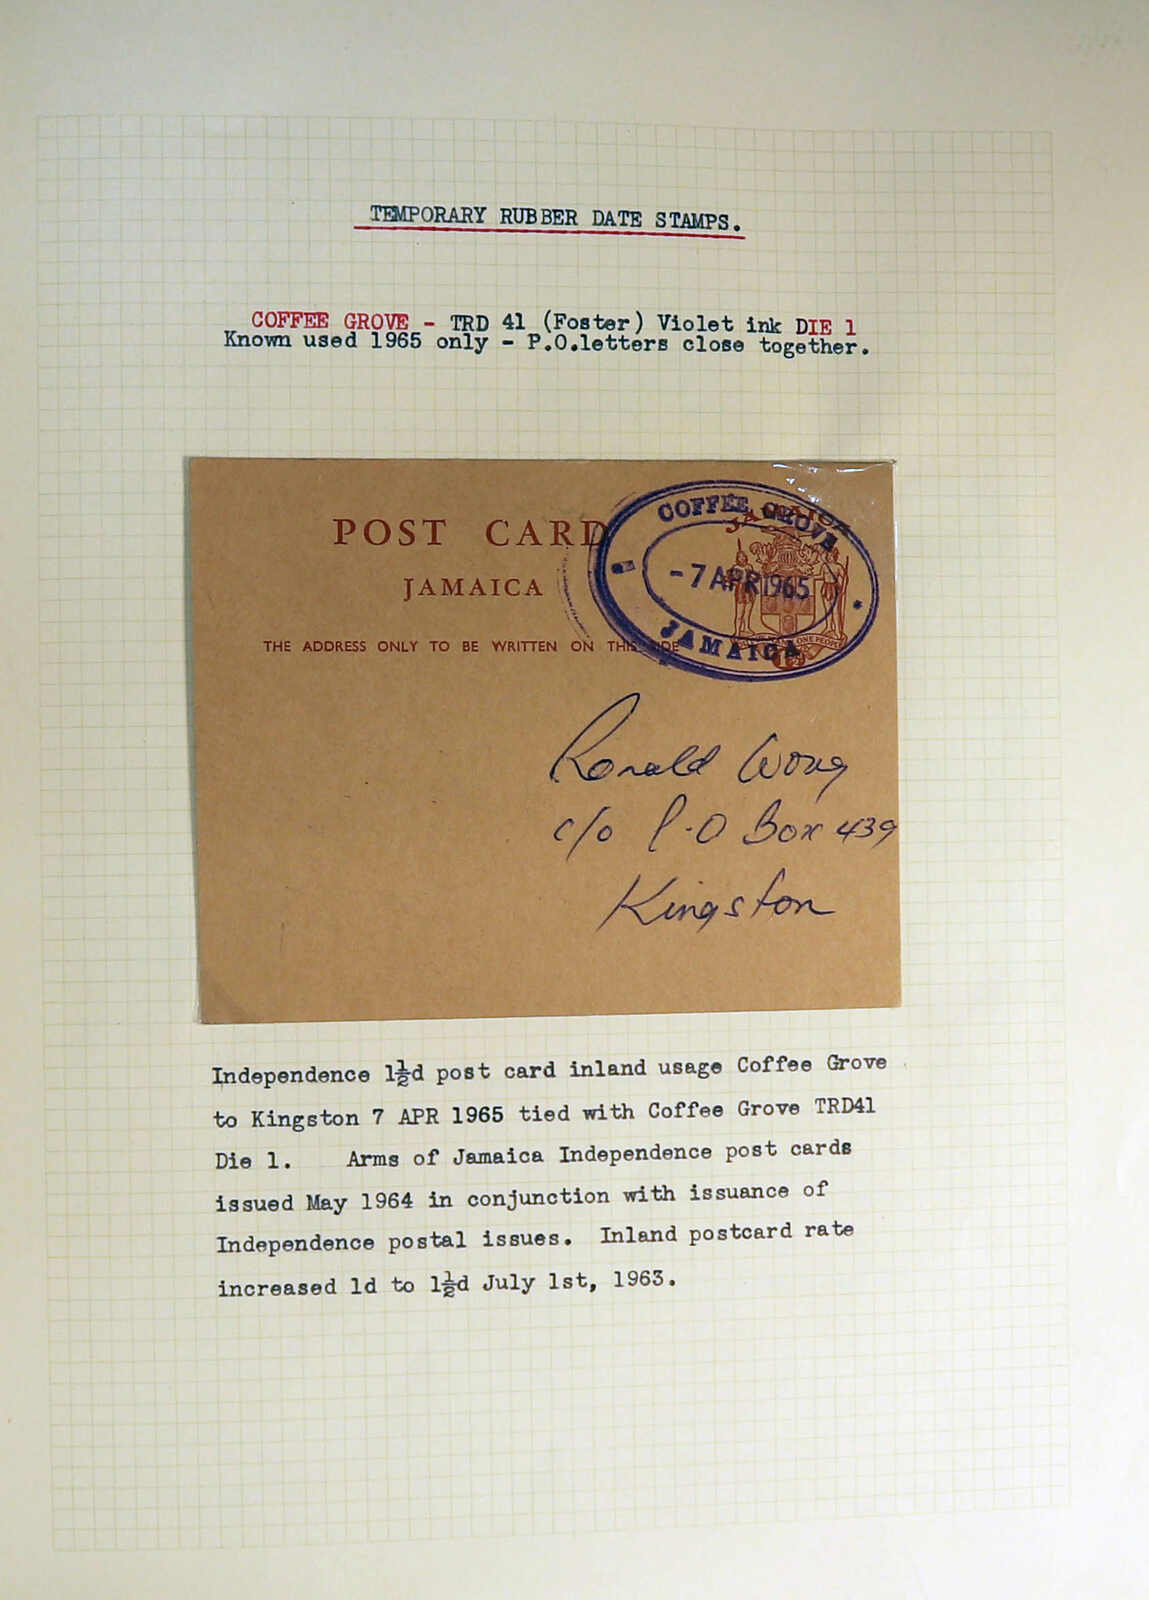 TEMPORARY RUBBER DATE STAMPS.
COFFEE GROVE - TRD 41 (Foster) Violet ink DIE 1
Known used 1965 only - P.O.letters close together.
POST CARD
JAMAICA
THE ADDRESS ONLY TO BE WRITTEN ON THIS SIDE
COFFEE GROVE
-7 APR 1965
JAMAICA
JAMAICA
ONE PEOPLE
1½
Ronald Wong
c/o P.O Box 439
Kingston
Independence 1½d post card inland usage Coffee Grove
to Kingston 7 APR 1965 tied with Coffee Grove TRD41
Die 1. Arms of Jamaica Independence post cards
issued May 1964 in conjunction with issuance of
Independence postal issues. Inland postcard rate
increased 1d to 1½d July 1st, 1963.